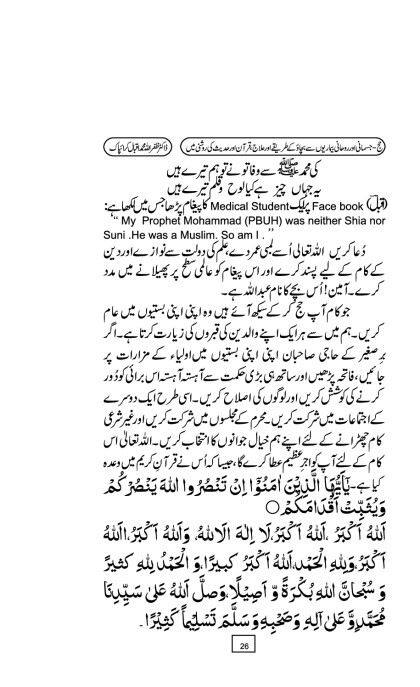 حج - جسمانی اور روحانی بیماریوں سے بچاؤ کے طریقے اور علاج، قرآن اور حدیث کی روشنی میں
ڈاکٹر ظفر اللہ محمد اقبال کرائپاک
کی محمدﷺ سے وفا تو نے تو ہم تیرے ہیں
یہ جہاں چیز ہے کیا لوح و قلم تیرے ہیں
(اقبال) Face book پر ایک Medical Student کا پیغام پڑھا جس میں لکھا ہے:
‘“ My Prophet Mohammad (PBUH) was neither Shia nor
Suni .He was a Muslim. So am I . ’’
دُعا کریں اللہ تعالی اُسے لمبی عمر دے، علم کی دولت سے نوازے اور دین
کے کام کے لیے پسند کرے اور اس پیغام کو عالمی سطح پر پھیلانے میں مدد
کرے۔ آمین! اُس بچے کا نام عبداللہ ہے۔
جو کام آپ حج کر کے سیکھ آئے ہیں وہ اپنی اپنی بستیوں میں عام
کریں۔ ہم میں سے ہر ایک اپنے والدین کی قبروں کی زیارت کرتا ہے۔ اگر
برِصغیر کے حاجی صاحبان اپنی اپنی بستیوں میں اولیاء کے مزارات پر
جائیں، فاتحہ پڑھیں اور ساتھ ہی بڑی حکمت سے آہستہ آہستہ اس برائی کو دُور
کرنے کی کوشش کریں اور لوگوں کی اصلاح کریں۔ اسی طرح ایک دوسرے
کے اجتماعات میں شرکت کریں۔ محرم کے مجلسوں میں شرکت کریں اور غیر شرعی
کام چھڑانے کے لئے اپنے ہم خیال جوانوں کا انتخاب کریں۔ اللہ تعالیٰ اس
کام کے لئے آپ کو اجرِ عظیم عطا کرے گا، جیسا کہ اُس نے قرآنِ کریم میں وعدہ
کیا ہے۔ یٰۤاَیُّهَا الَّذِیْنَ اٰمَنُوْۤا اِنْ تَنْصُرُوا اللهَ یَنْصُرْكُمْ
وَیُثَبِّتْ اَقْدَامَكُمْ○
اَللهُ اَكْبَرُ ،اَللهُ اَكْبَرُ،لَا اِلٰهَ اِلَّا اللهُ، وَاللهُ اَكْبَرُ،اَللهُ
اَكْبَرُ،وَلِلهِ الْحَمْد،اَللهُ اَكْبَرُ كَبِیرًا،وَ الْحَمْدُ لِلهِ كَثِیرً ا
وَ سُبْحَانَ اللهِ بُكْرَةً وَّ اَصِیْلًا،وَصَلَّ اللهُ عَلیٰ سَیِّدِنَا
مُحَمَّدٍ وَّ عَلیٰ اٰلِهٖ وَ صَحْبِهٖ وَ سَلَّمَ تَسْلِیْماً كَثِیْرًا۔
26